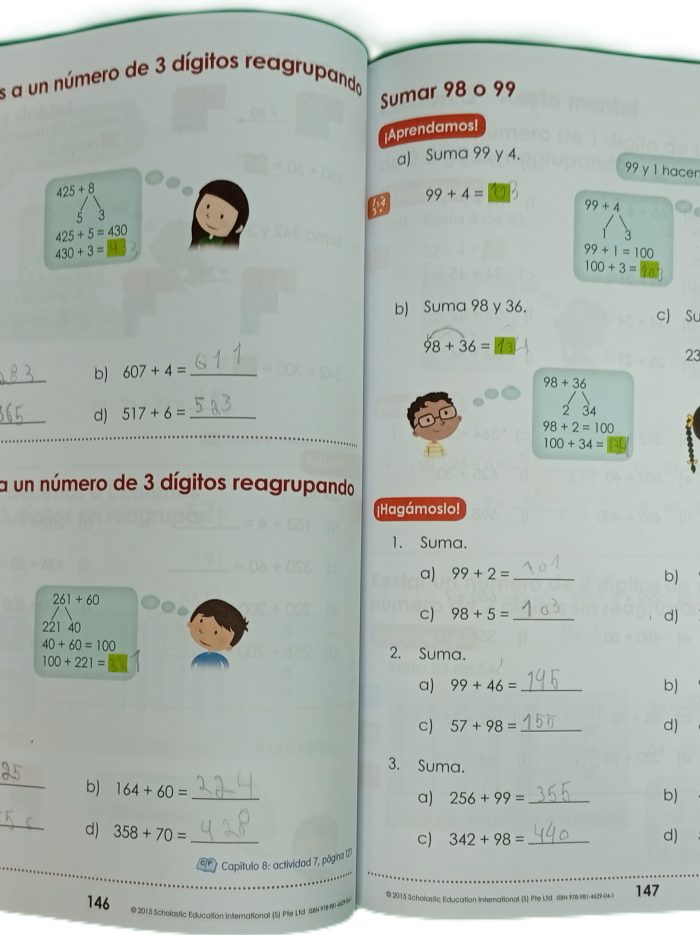 s a un número de 3 dígitos reagrupando
425 + 8
5 3
425 + 5 = 430
430 + 3 = 433
283
b) 607 + 4 = 611
365
d) 517 + 6 = 523
a un número de 3 dígitos reagrupando
261 + 60
221 40
40 + 60 = 100
100 + 221 = 321
25
b) 164 + 60 = 224
d) 358 + 70 = 428
Capítulo 8: actividad 7, página
146
© 2015 Scholastic Education International (S) Pte Ltd
Sumar 98 o 99
¡Aprendamos!
a) Suma 99 y 4.
99 y 1 hacen
99 + 4 = 103
99 + 4
1 3
99 + 1 = 100
100 + 3 = 103
b) Suma 98 y 36.
c) Su
98 + 36 = 134
23
98 + 36
2 34
98 + 2 = 100
100 + 34 = 134
¡Hagámoslo!
1. Suma.
a) 99 + 2 = 101
b)
c) 98 + 5 = 103
d)
2. Suma.
a) 99 + 46 = 145
b)
c) 57 + 98 = 155
d)
3. Suma.
a) 256 + 99 = 355
b)
c) 342 + 98 = 440
d)
© 2015 Scholastic Education International (S) Pte Ltd ISBN 978-981-4629-04-1
147